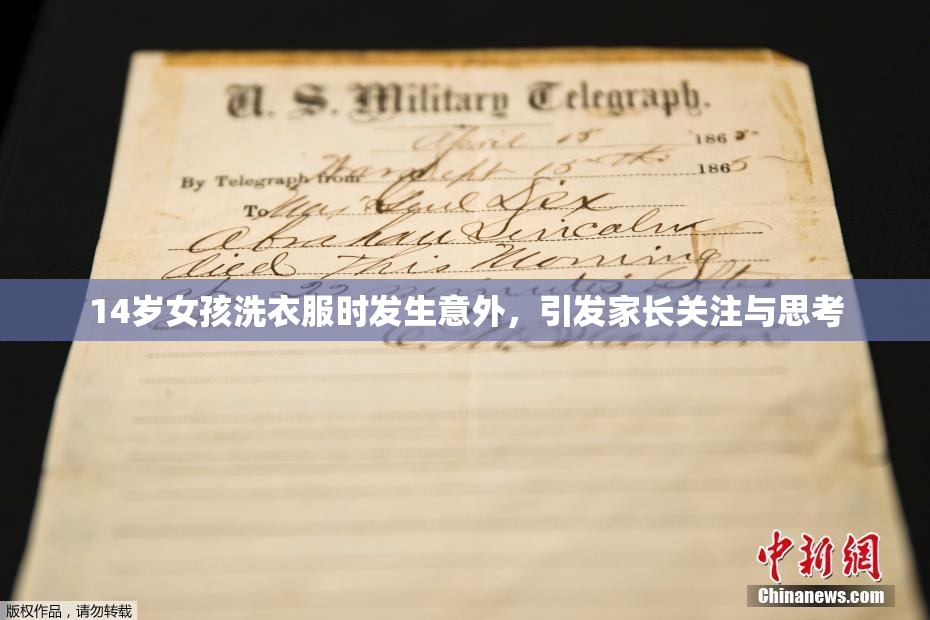 U. S. Military Telegraph.
April 15 1865
By Telegraph from War Dept 15th 1865
To Maj Genl Dix
Abraham Lincoln
died This Morning
at 22 minutes after
14岁女孩洗衣服时发生意外，引发家长关注与思考
E. M. Stanton
中新网
Chinanews.com
版权作品，请勿转载